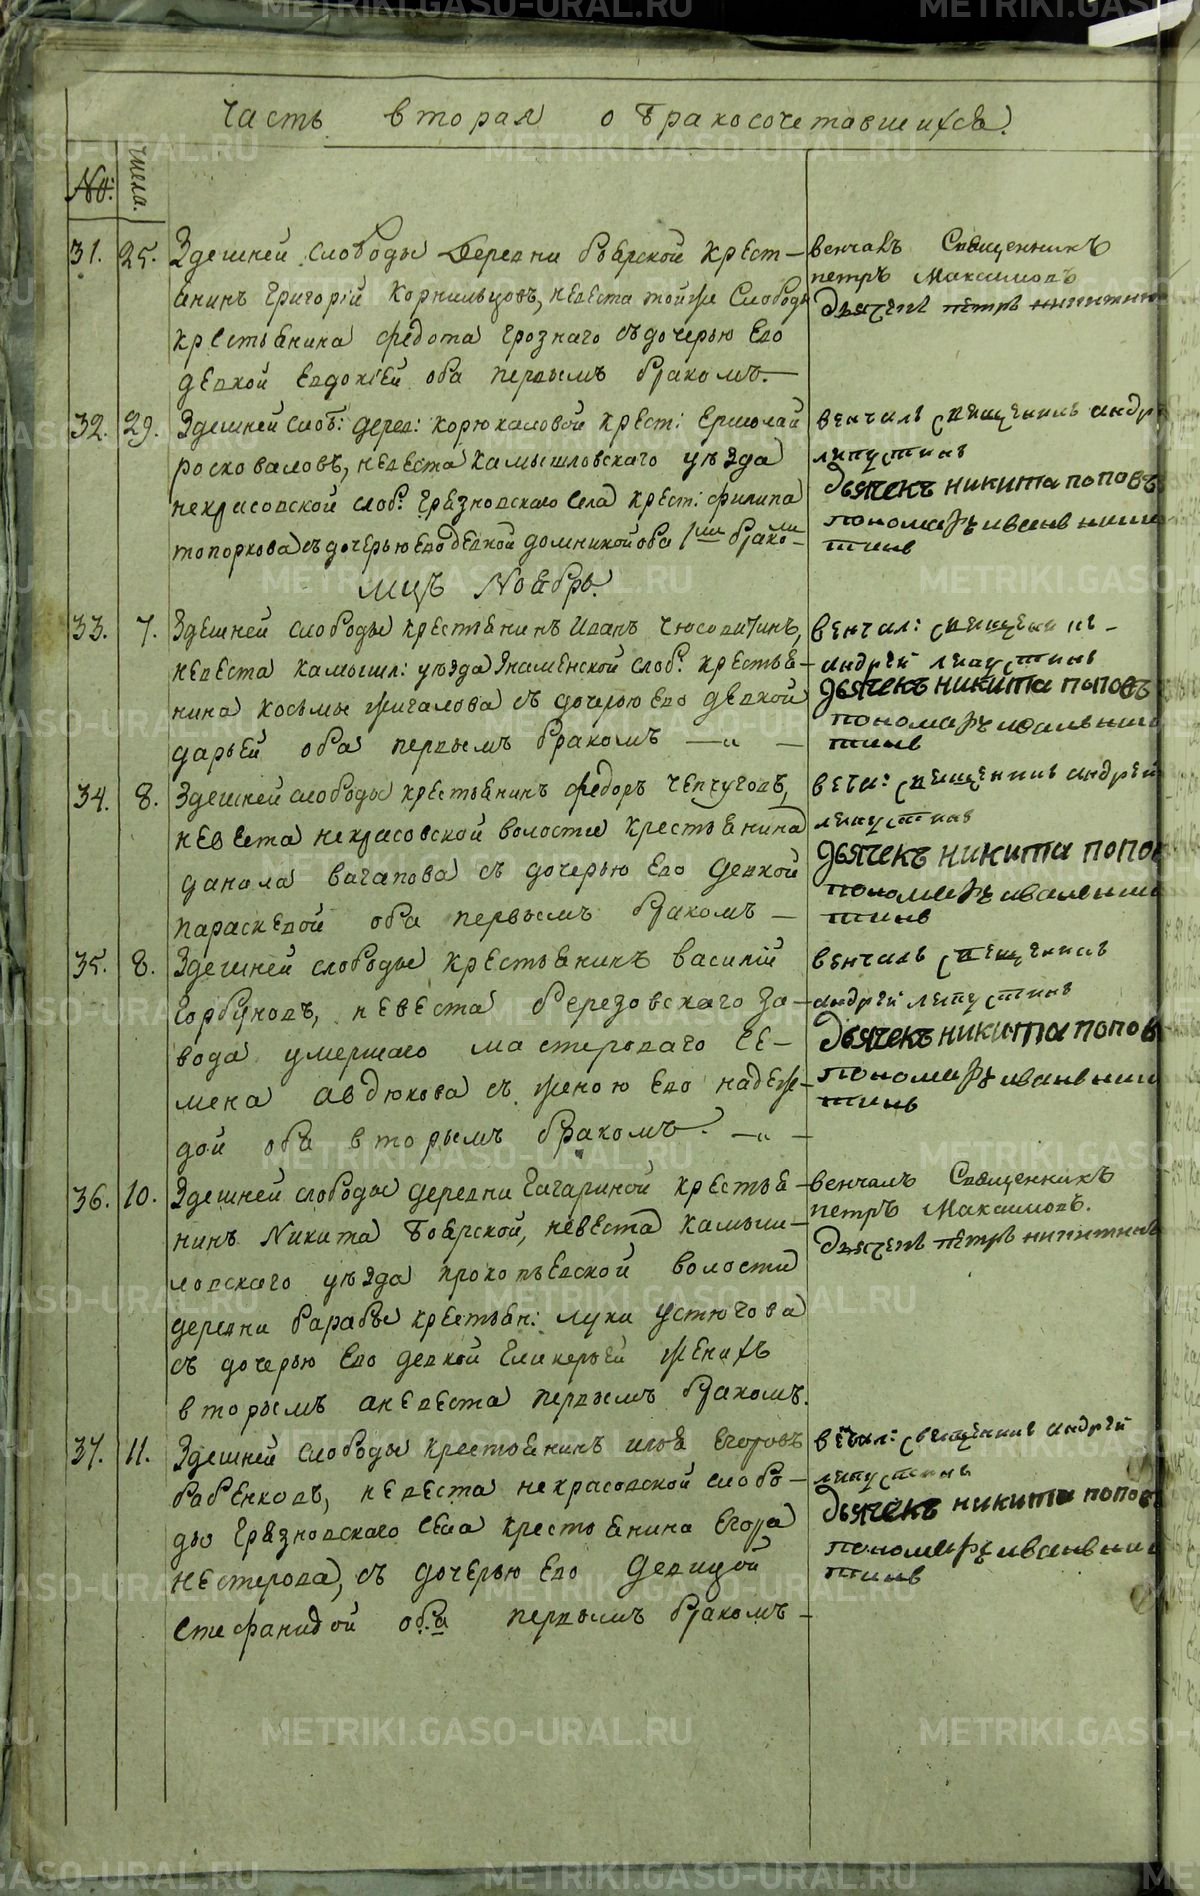 Часть вторая о бракосочетавшихся.
№: числа.
31. 25. Здешней слободы деревни боярской крест-
янинъ григорій корнильцовъ, невеста тойже слободы
крестьянина федота грознаго съ дочерью его
девкой евдокіей оба первымъ бракомъ.
венчалъ священникъ
петръ максимовъ
дьячекъ петръ никитин
32. 29. Здешней слоб: дерев: корюкаловой крест: ермолай
росковаловъ, невеста камышловскаго уѣзда
некрасовской слоб: грязновскаго села крест: филипа
топоркова съ дочерью его девкой домникой оба 1ми брако-
венчалъ священникъ андр
ляпустинъ
дьячекъ никита поповъ
пономарь иванъ ники
тинъ
мцъ Ноябрь.
33. 7. Здешней слободы крестьянинъ иванъ чюсовитинъ,
невеста камышл: уѣзда знаменской слоб: крестья-
нина космы жигалова съ дочерью его девкой
дарьей оба первымъ бракомъ
венчал: священни
андрей ляпустинъ
дьячекъ никита поповъ
пономарь иванъ ники
тинъ
34. 8. Здешней слободы крестьянинъ федоръ чепчуговъ,
невеста некрасовской волости крестьянина
данила ваганова съ дочерью его девкой
параскевой оба первымъ бракомъ —
венч: священникъ андрей
ляпустинъ
дьячекъ никита попов
пономарь иванъ ники
тинъ
35. 8. Здешней слободы крестьянинъ василий
горбуновъ, невеста березовскаго за-
вода умершаго мастероваго се-
мена авдюкова съ женою его надеж-
дой оба вторымъ бракомъ.
венчалъ священникъ
андрей ляпустинъ
дьячекъ никита попов
пономарь иванъ ники
тинъ
36. 10. Здешней слободы деревни гагариной крестья-
нинъ Никита боярской, невеста камыш-
ловскаго уѣзда прокопьевской волости
деревни барабы крестьян: луки устюгова
съ дочерью его девкой гликерьей женихъ
вторымъ а невеста первымъ бракомъ.
венчалъ священникъ
петръ максимовъ.
дьячекъ петръ никитинъ
37. 11. Здешней слободы крестьянинъ илья егоровъ
бабенковъ, невеста некрасовской слобо-
ды грязновскаго села крестьянина егора
нестерова, съ дочерью его девицой
стефанидой оба первымъ бракомъ-
венчал: священникъ андрей
ляпустинъ
дьячекъ никита попов
пономарь иванъ ники
тинъ
METRIKI.GASO-URAL.RU